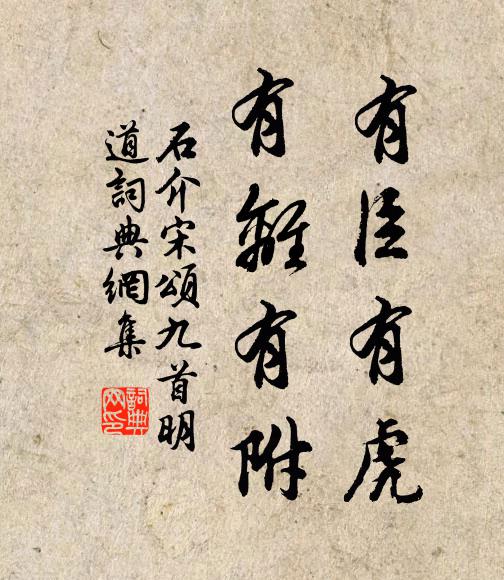 有臣有虎
有離有附
石介宋頌九首明
道詞典網集
詞典
网印